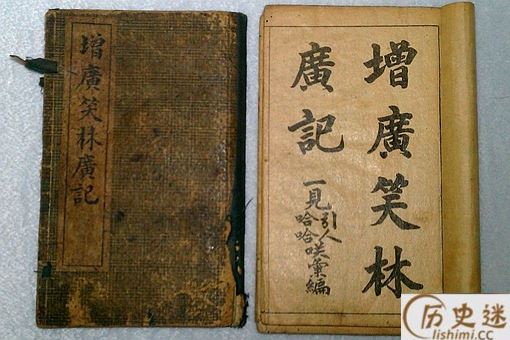 增廣笑林廣記
增廣笑林
廣記
一見引人哈哈咲彙編
历史迷
lishimi.cc